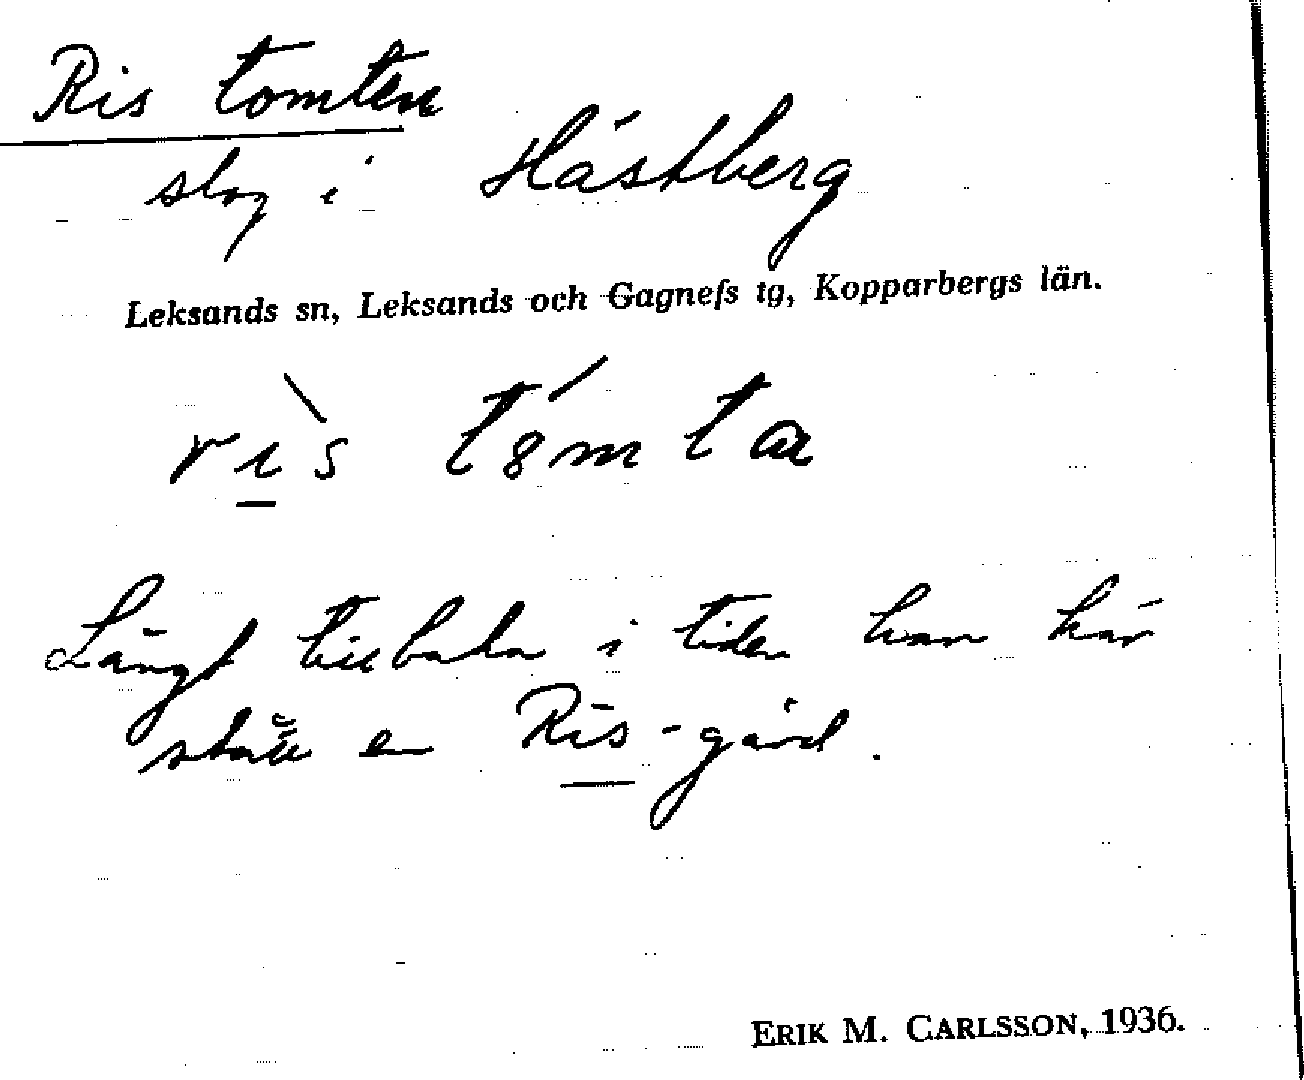 Ris tomten
slog i Hästberg
Leksands sn, Leksands och Gagnefs tg, Kopparbergs län.
rı̀s tómta
Långt tillbaka i tiden har här
stått en Ris-gård.
ERIK M. CARLSSON, 1936.